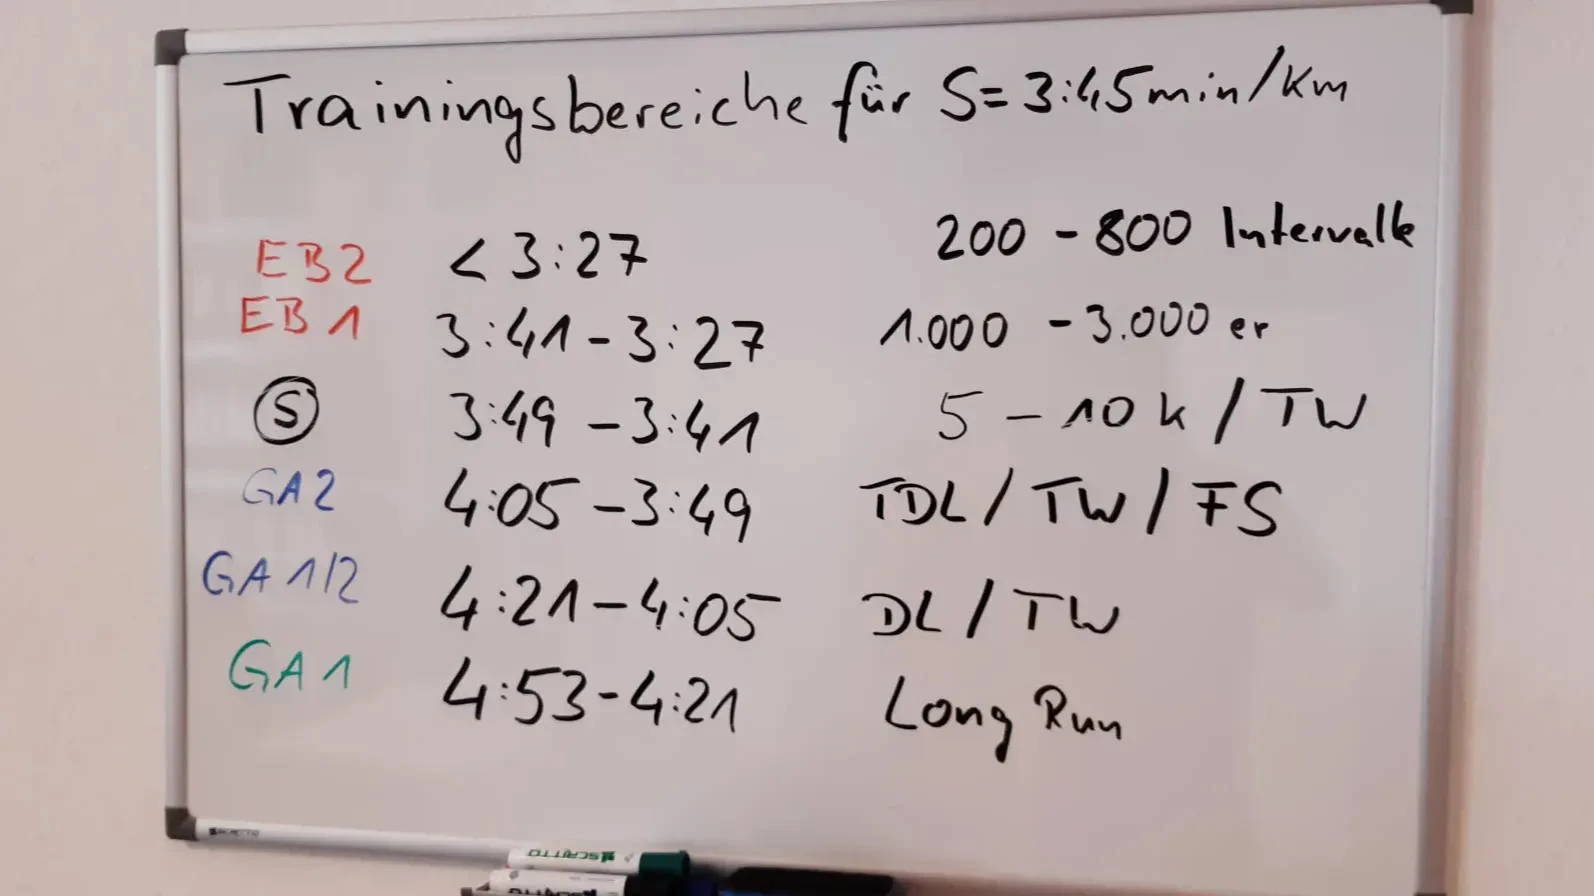 Trainingsbereiche für S=3:45min/km
EB2 < 3:27 200 - 800 Intervalle
EB1 3:41 - 3:27 1.000 - 3.000 er
S 3:49 - 3:41 5 - 10 k / TW
GA2 4:05 - 3:49 TDL / TW / FS
GA 1/2 4:21 - 4:05 DL / TW
GA1 4:53 - 4:21 Long Run
SCRITTO
SCRITTO
SCRITTO